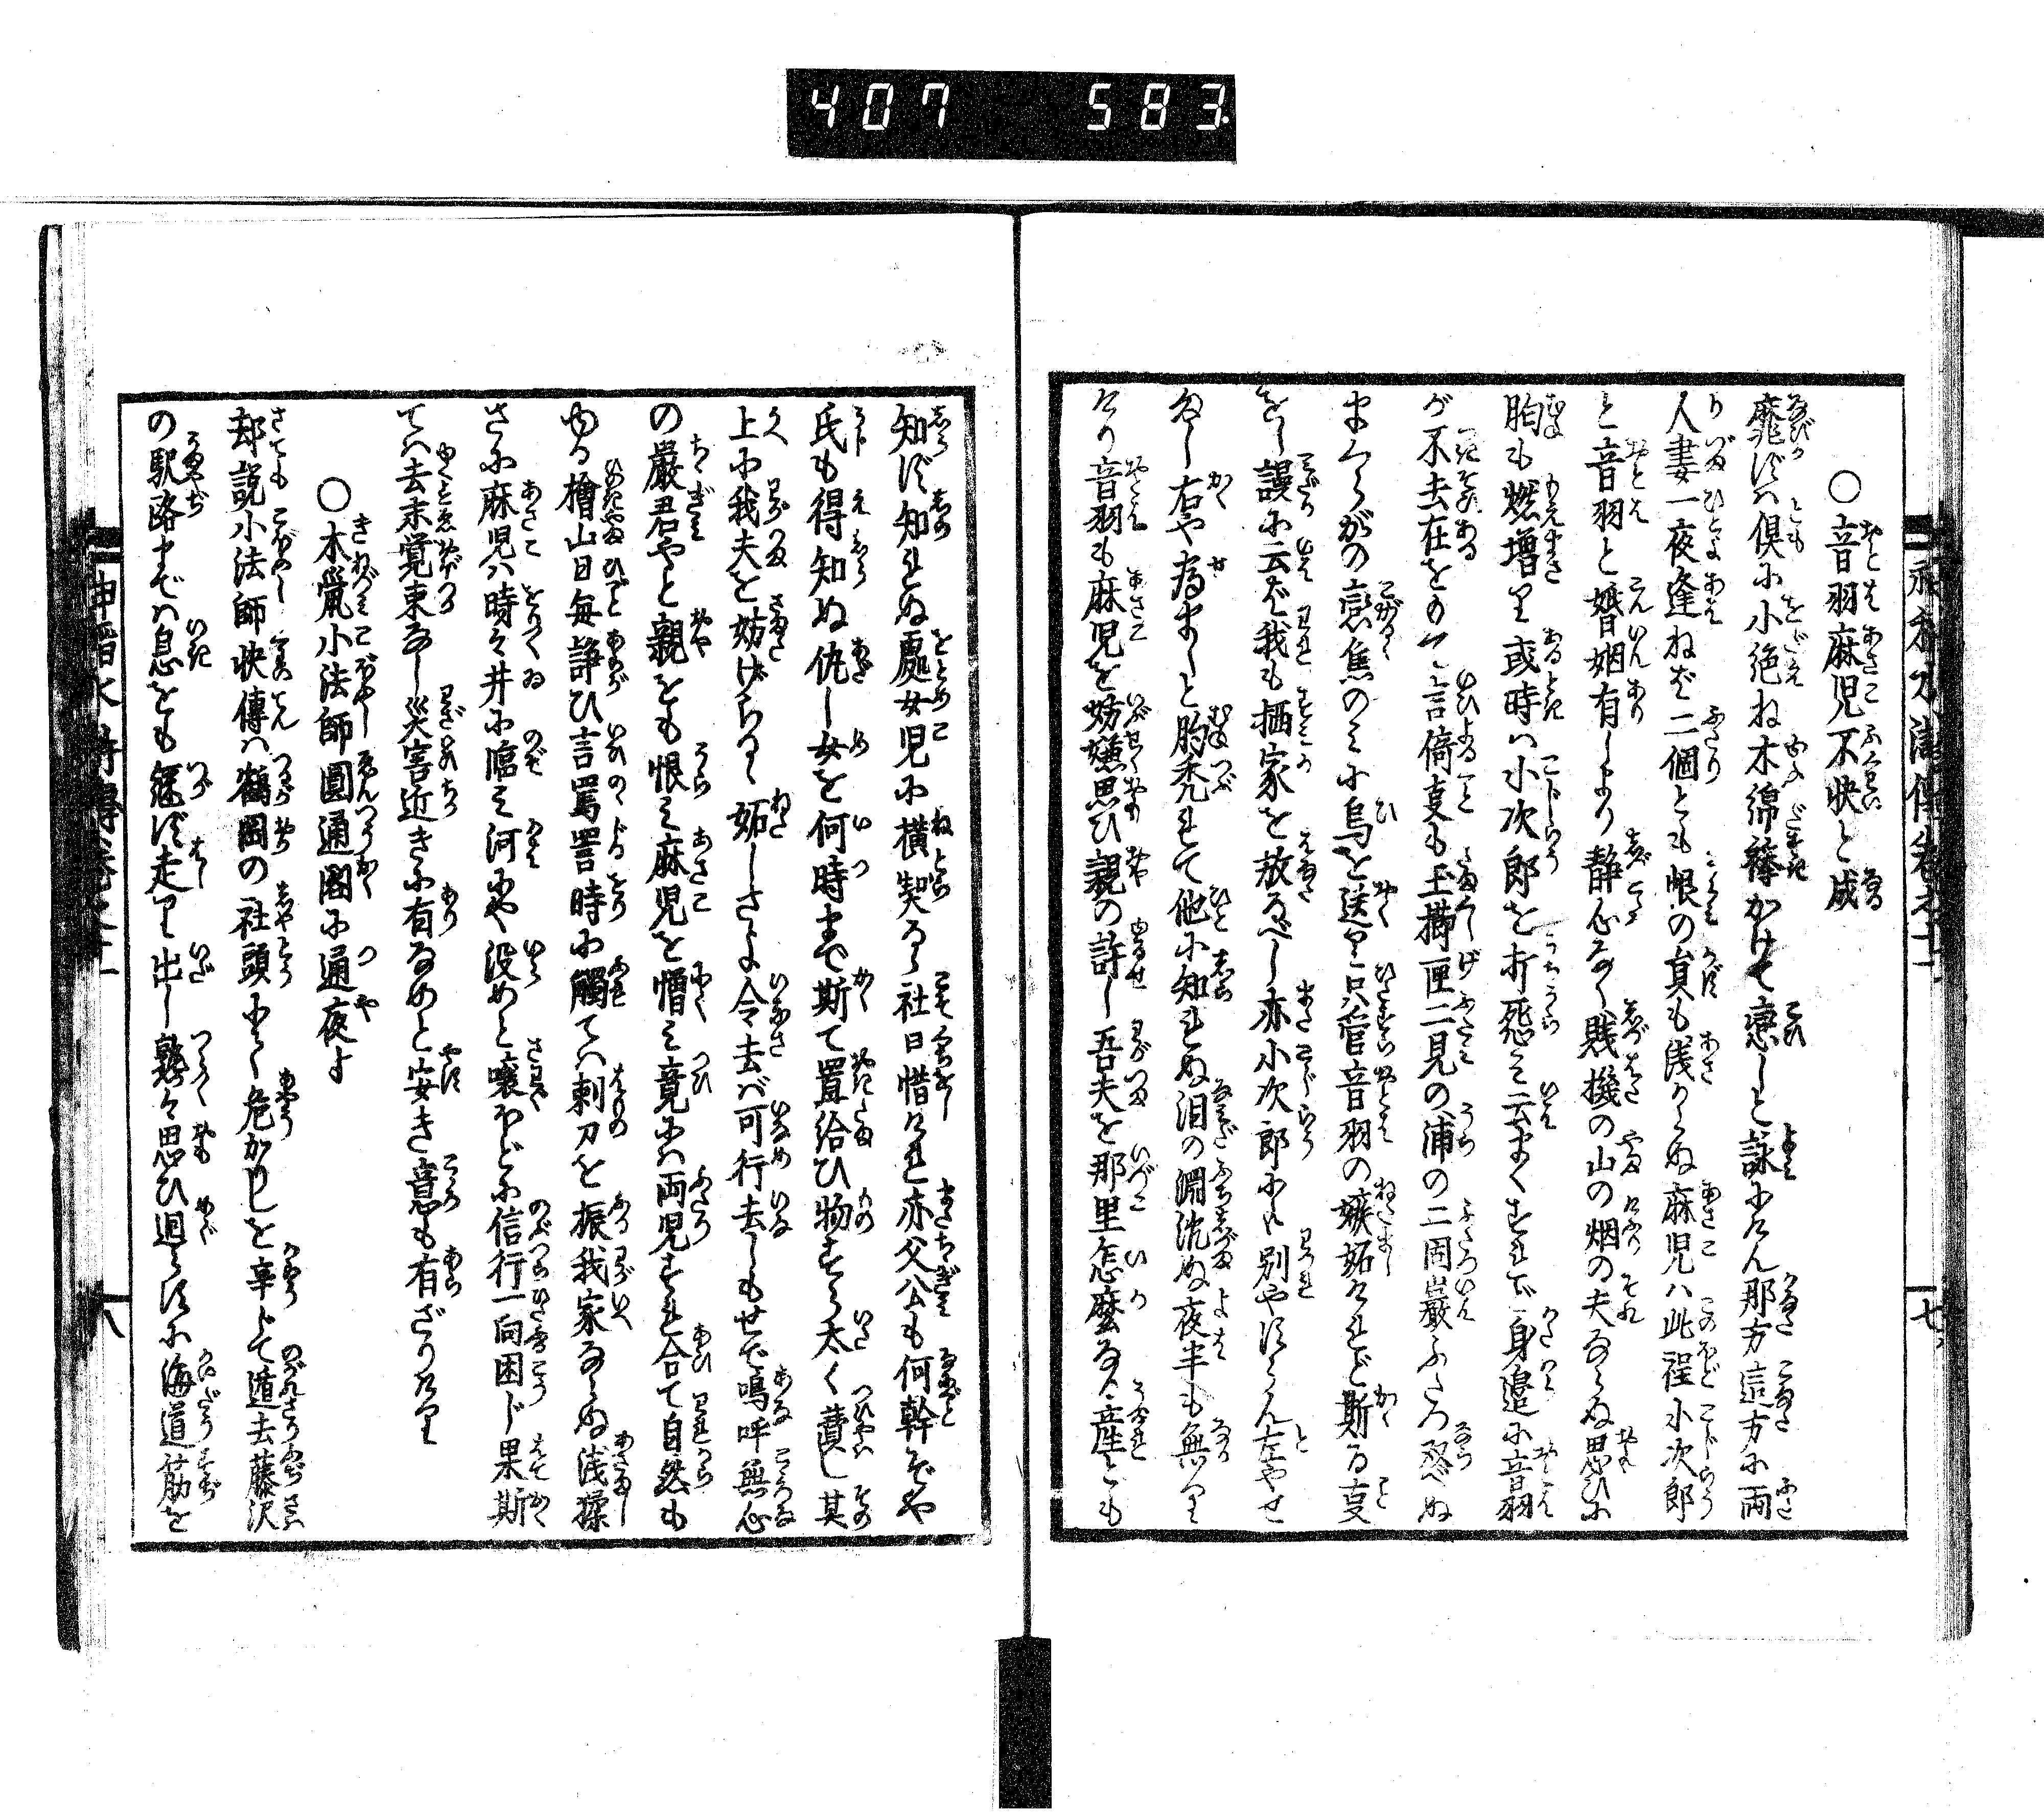 407 583.
○音羽麻児不快と成
靡ずバ倶に小絶ね木綿襷かけて恋しと詠にけん那方這方に両
人妻一夜逢ねど二個とも恨の員も浅からぬ麻児ハ此程小次郎
と音羽と婚姻有しより静心なく賎機の山の烟の夫ならぬ思ひに
胸も燃増り或時ハ小次郎を打怨ミ云まくすれど身邉に音羽
が不去在をもて言倚亥も玉櫛匣二見の浦の二困巌ふたつ双べぬ
まくらがの恋焦のミに烏を送り只管音羽の嫉妬けれど斯る亥
をし謾に云ば我も栖家を放るべし亦小次郎にハ別やすらん左やせ
なし右や為ましと胸禿れて他に知れぬ泪の淵沈ぬ夜半も無り
けり音羽も麻児を妨嫌思ひ親の許し吾夫を那里怎麼なる産とも
知ず知れぬ處女児に横契るゝ社日惜けれ亦父公も何幹ぞや
氏も得知ぬ仇し女を何時まで斯て置給ひ物すら太く費し其
上に我夫を妨げらるゝ妬しさよ今去バ可行去しもせで鳴呼無心
の嚴君やと親をも恨ミ麻児を憎ミ竟にハ両児すれ合て自然も
ゆる檜山日毎諍ひ言罵詈時に觸てハ剌刀を振我家ならぬ浅猱
さに麻児ハ時々井に臨ミ河にや没めと噪ほどに信行一向困じ果斯
てハ去末覚束なし災害近きに有なめと安き意も有ざりけり
○木鼡小法師圓通閣に通夜す
却説小法師状傳ハ鶴岡の社頭にて危かりしを辛じて遁去藤沢
の駅路までハ息をも継ず走り出し熟々思ひ廻らすに海道筋を
七
八